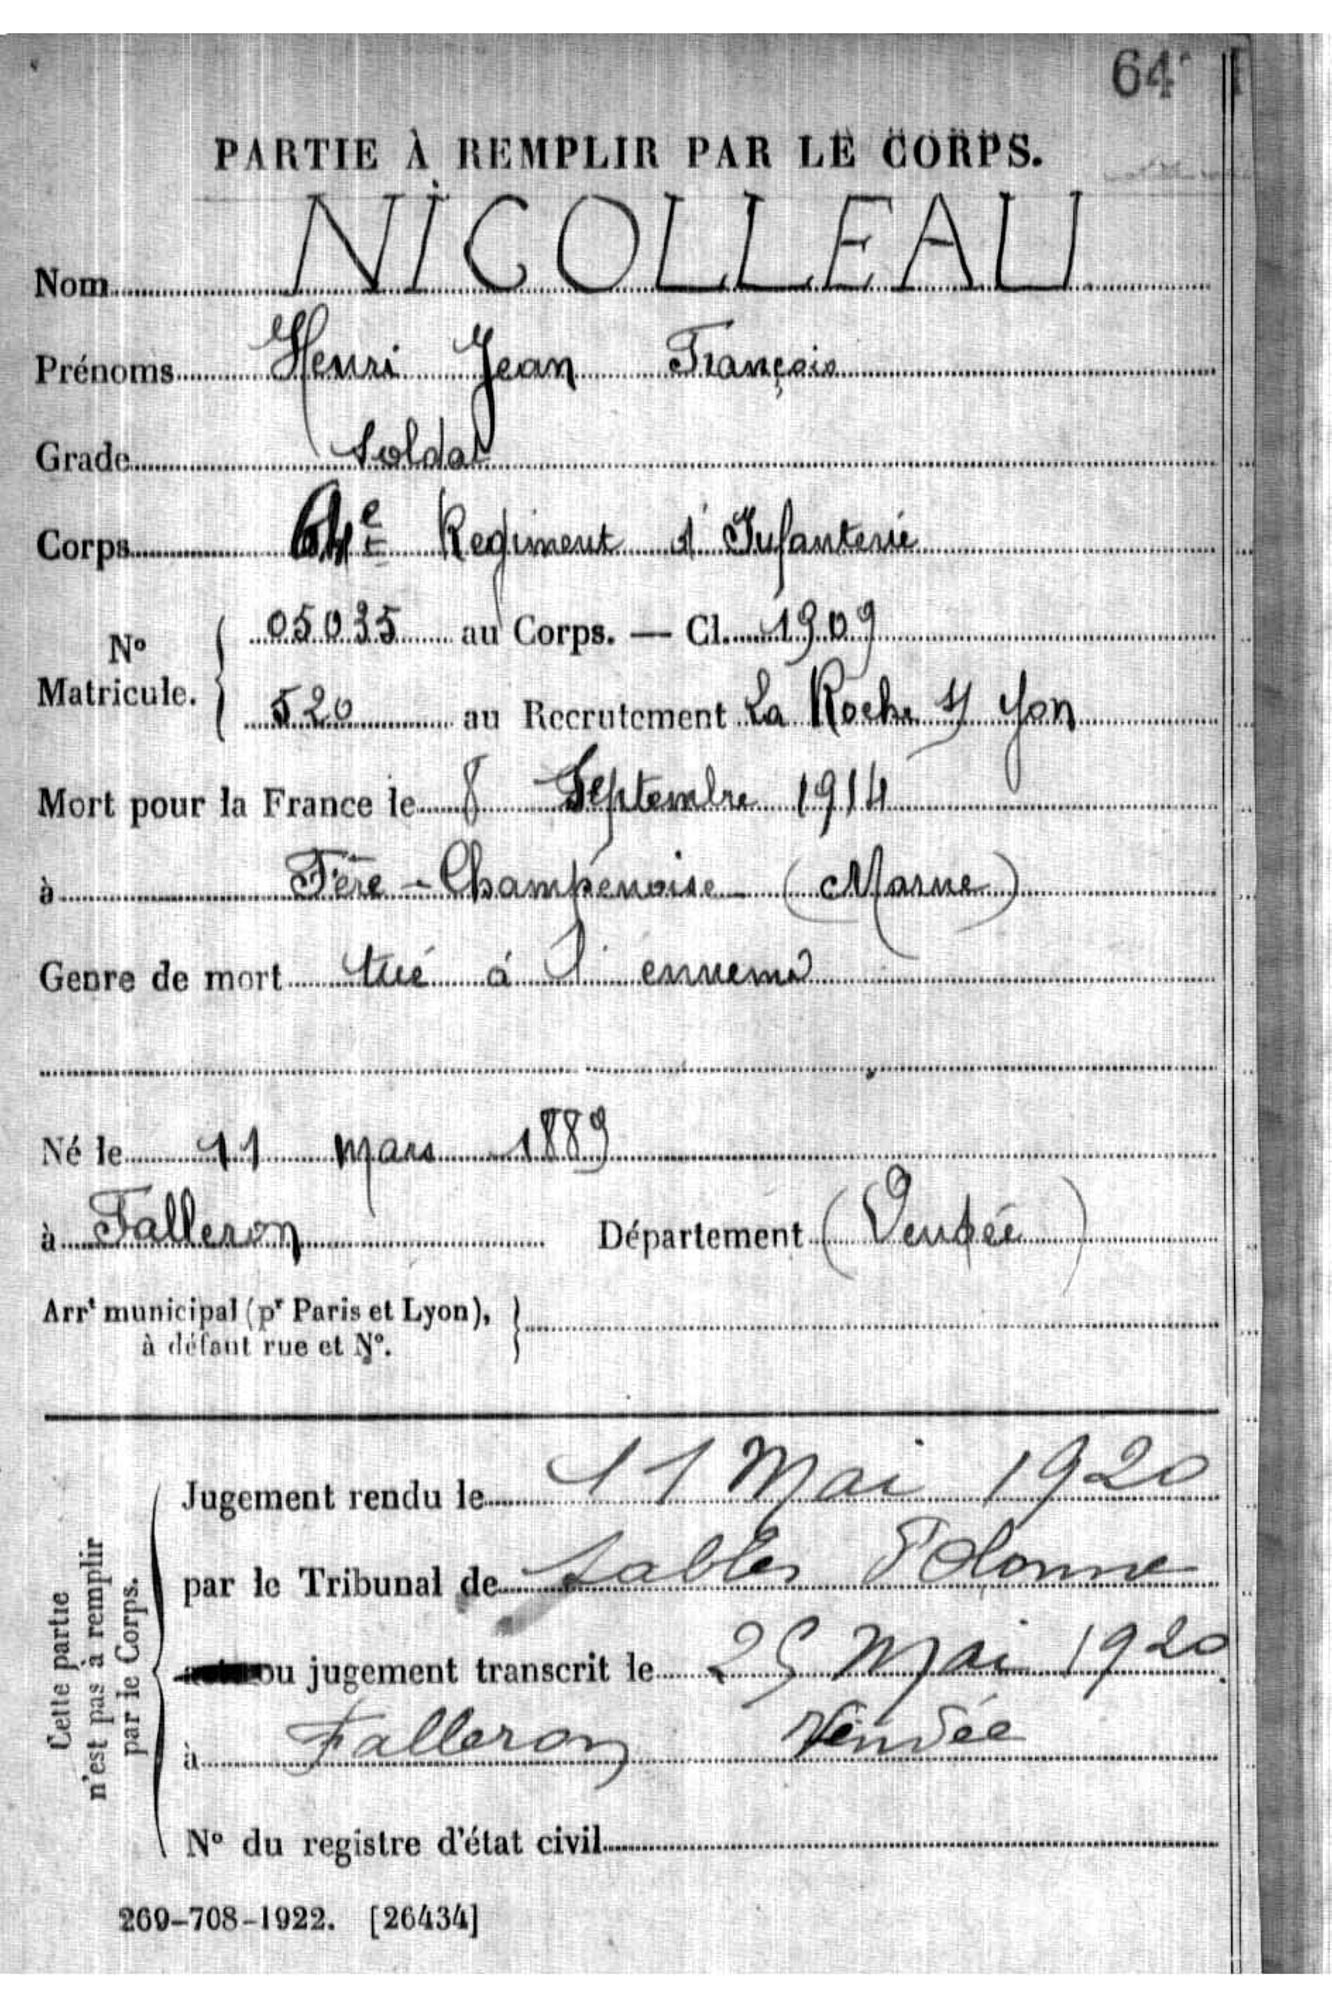 64
PARTIE À REMPLIR PAR LE CORPS.
Nom NICOLLEAU
Prénoms Henri Jean François
Grade Soldat
Corps 64e Regiment d'Infanterie
N° Matricule. 05035 au Corps. — Cl. 1909
520 au Recrutement La Roche s/ Yon
Mort pour la France le 8 Septembre 1914
à Fère-Champenoise (Marne)
Genre de mort tué à l'ennemi
Né le 11 mars 1889
à Falleron Département (Vendée)
Arrt municipal (pr Paris et Lyon),
à défaut rue et N°.
Cette partie
n'est pas à remplir
par le Corps.
Jugement rendu le 11 Mai 1920
par le Tribunal de Sables d'Olonne
ou jugement transcrit le 25 Mai 1920
à Falleron Vendée
N° du registre d'état civil
269-708-1922. [26434]